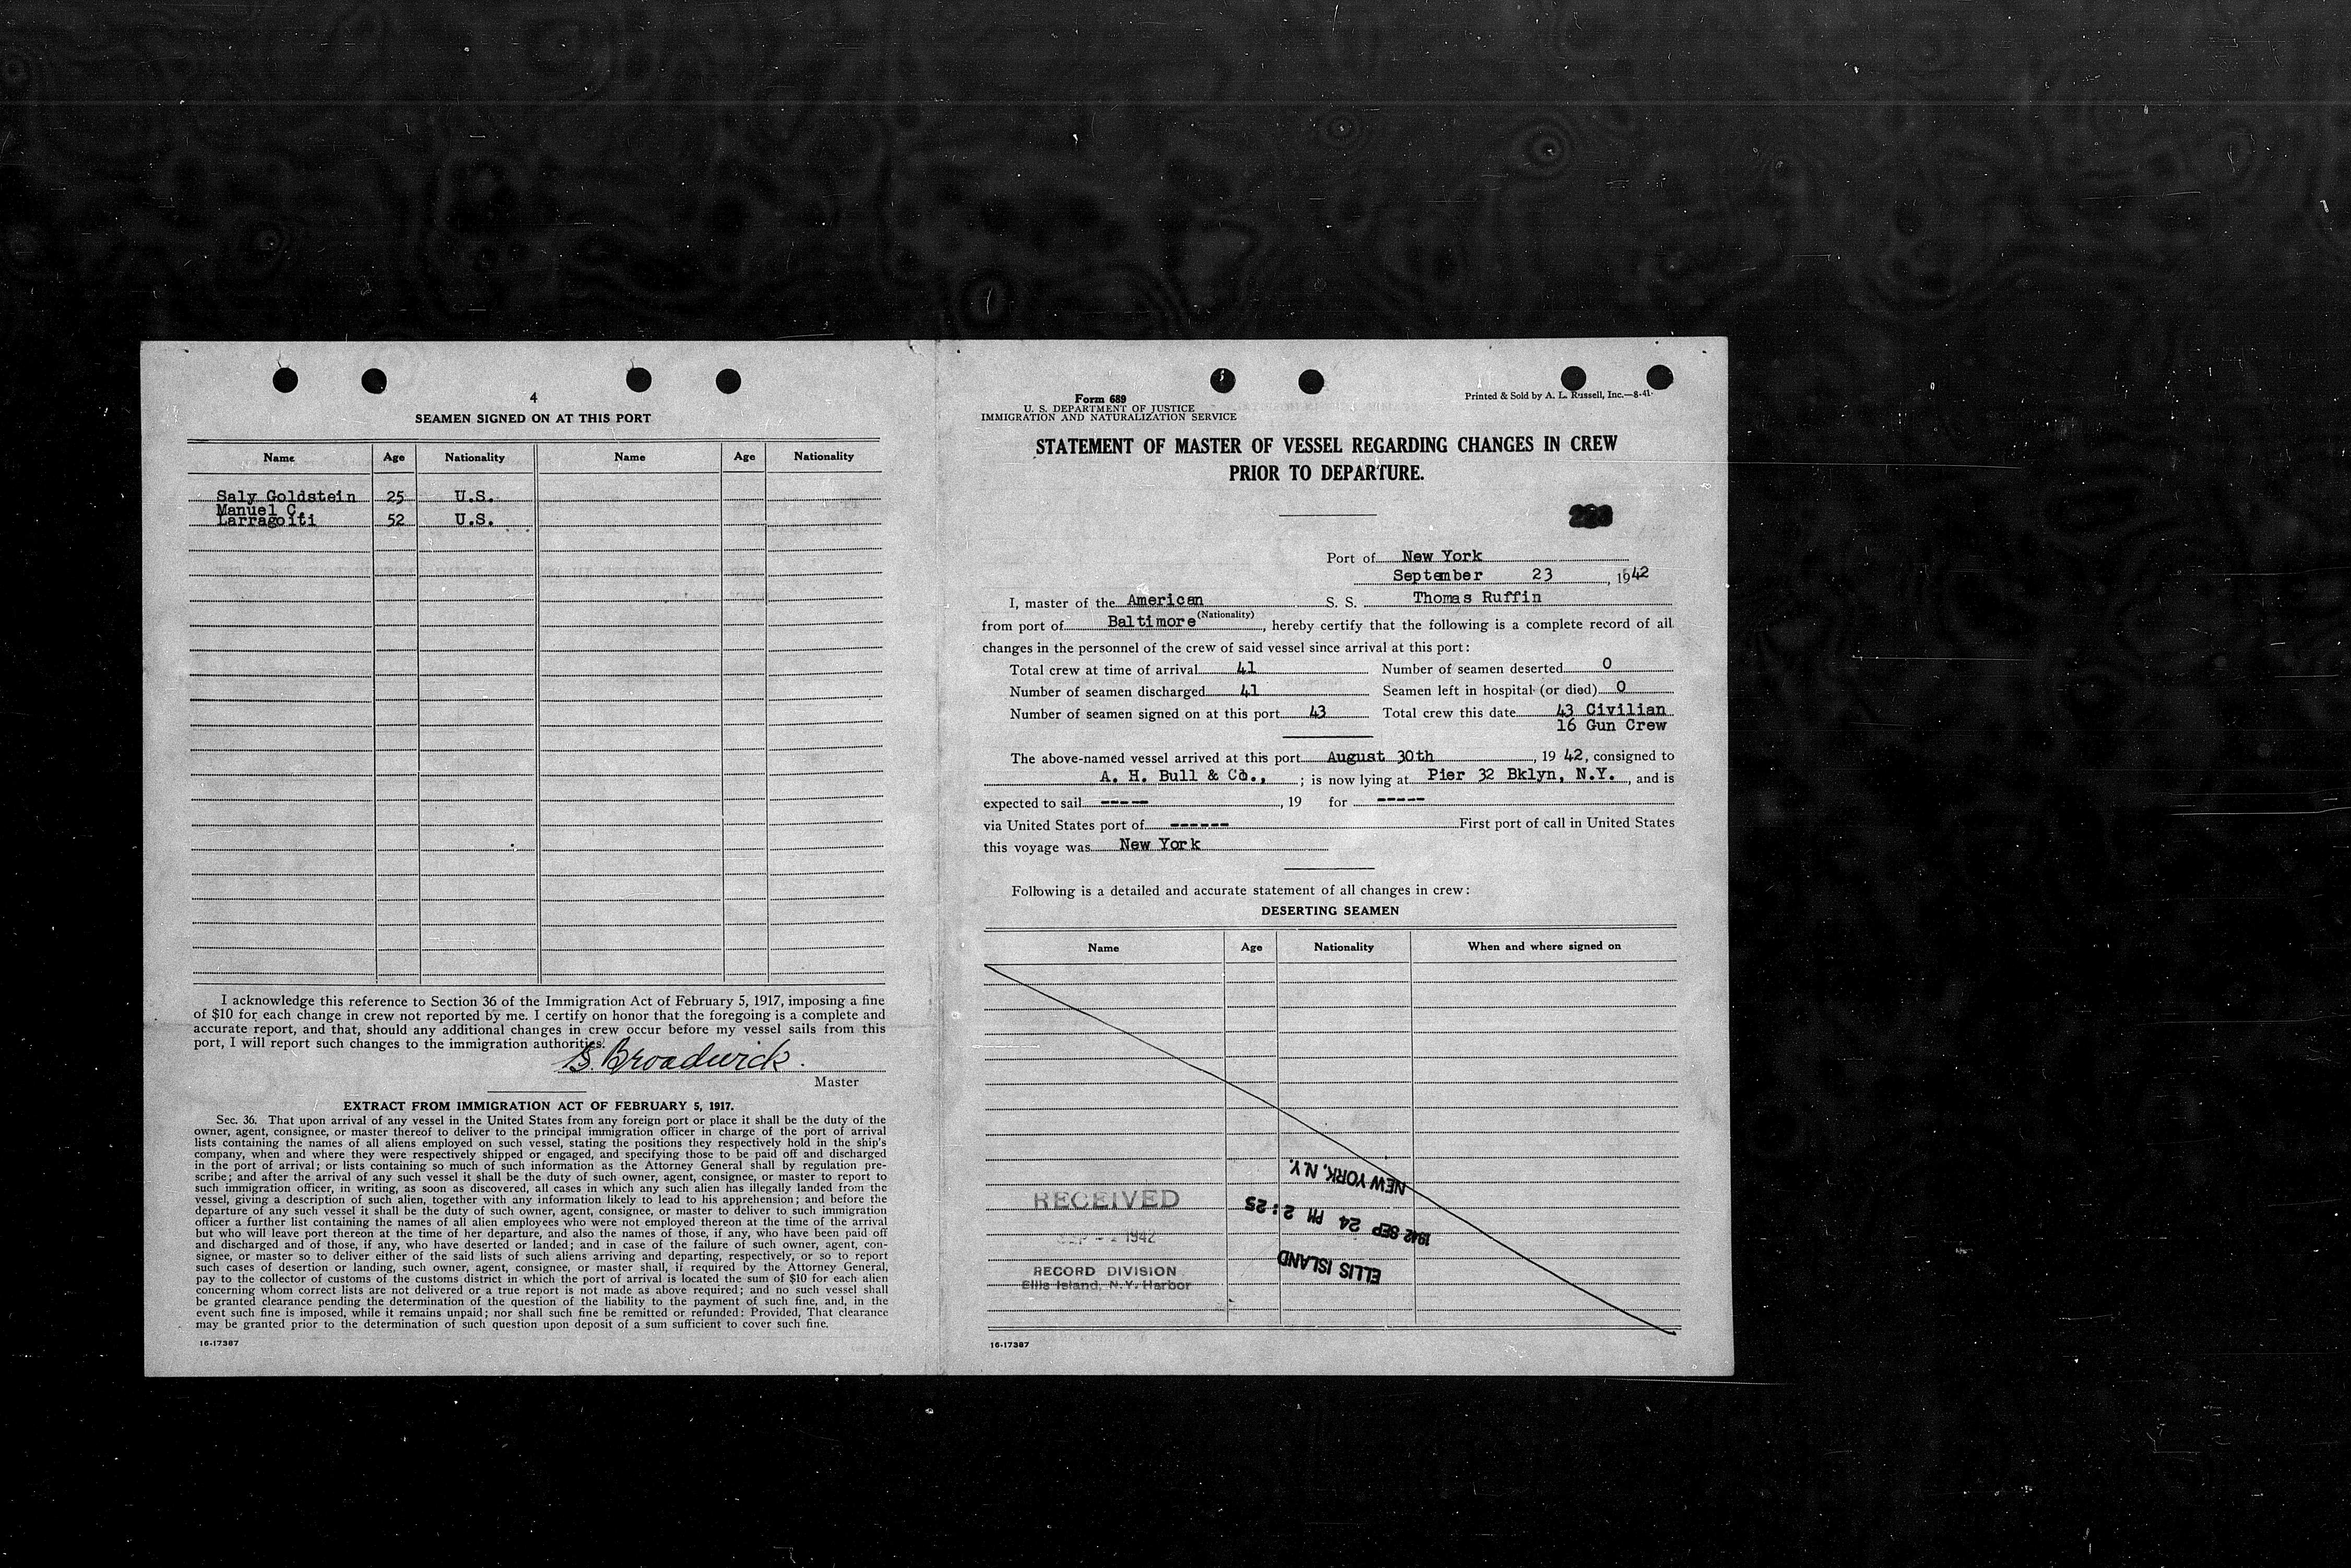 4
SEAMEN SIGNED ON AT THIS PORT
Name Age Nationality Name Age Nationality
Saly Goldstein 25 U.S.
Manuel C.
Larragoiti 52 U.S.
I acknowledge this reference to Section 36 of the Immigration Act of February 5, 1917, imposing a fine
of $10 for each change in crew not reported by me. I certify on honor that the foregoing is a complete and
accurate report, and that, should any additional changes in crew occur before my vessel sails from this
port, I will report such changes to the immigration authorities.
Broadwick.
Master
EXTRACT FROM IMMIGRATION ACT OF FEBRUARY 5, 1917.
Sec. 36. That upon arrival of any vessel in the United States from any foreign port or place it shall be the duty of the
owner, agent, consignee, or master thereof to deliver to the principal immigration officer in charge of the port of arrival
lists containing the names of all aliens employed on such vessel, stating the positions they respectively hold in the ship's
company, when and where they were respectively shipped or engaged, and specifying those to be paid off and discharged
in the port of arrival; or lists containing so much of such information as the Attorney General shall by regulation pre-
scribe; and after the arrival of any such vessel it shall be the duty of such owner, agent, consignee, or master to report to
such immigration officer, in writing, as soon as discovered, all cases in which any such alien has illegally landed from the
vessel, giving a description of such alien, together with any information likely to lead to his apprehension; and before the
departure of any such vessel it shall be the duty of such owner, agent, consignee, or master to deliver to such immigration
officer a further list containing the names of all alien employees who were not employed thereon at the time of the arrival
but who will leave port thereon at the time of her departure, and also the names of those, if any, who have been paid off
and discharged and of those, if any, who have deserted or landed; and in case of the failure of such owner, agent, con-
signee, or master so to deliver either of the said lists of such aliens arriving and departing, respectively, or so to report
such cases of desertion or landing, such owner, agent, consignee, or master shall, if required by the Attorney General,
pay to the collector of customs of the customs district in which the port of arrival is located the sum of $10 for each alien
concerning whom correct lists are not delivered or a true report is not made as above required; and no such vessel shall
be granted clearance pending the determination of the question of the liability to the payment of such fine, and, in the
event such fine is imposed, while it remains unpaid; nor shall such fine be remitted or refunded: Provided, That clearance
may be granted prior to the determination of such question upon deposit of a sum sufficient to cover such fine.
16-17387
Form 689
U. S. DEPARTMENT OF JUSTICE
IMMIGRATION AND NATURALIZATION SERVICE
Printed & Sold by A. L. Russell, Inc.—8-41
STATEMENT OF MASTER OF VESSEL REGARDING CHANGES IN CREW
PRIOR TO DEPARTURE.
Port of New York
September 23, 1942
I, master of the American S. S. Thomas Ruffin
(Nationality)
from port of Baltimore, hereby certify that the following is a complete record of all
changes in the personnel of the crew of said vessel since arrival at this port:
Total crew at time of arrival 41 Number of seamen deserted 0
Number of seamen discharged 41 Seamen left in hospital (or died) 0
Number of seamen signed on at this port 43 Total crew this date 43 Civilian
16 Gun Crew
The above-named vessel arrived at this port August 30th, 19 42, consigned to
A. H. Bull & Co., ; is now lying at Pier 32 Bklyn, N.Y., and is
expected to sail -----, 19 for -----
via United States port of ------ First port of call in United States
this voyage was New York
Following is a detailed and accurate statement of all changes in crew:
DESERTING SEAMEN
Name Age Nationality When and where signed on
RECEIVED
1942
RECORD DIVISION
Ellis Island, N.Y. Harbor
ELLIS ISLAND
1942 SEP 24 PM 2:25
NEW YORK, N.Y.
16-17387